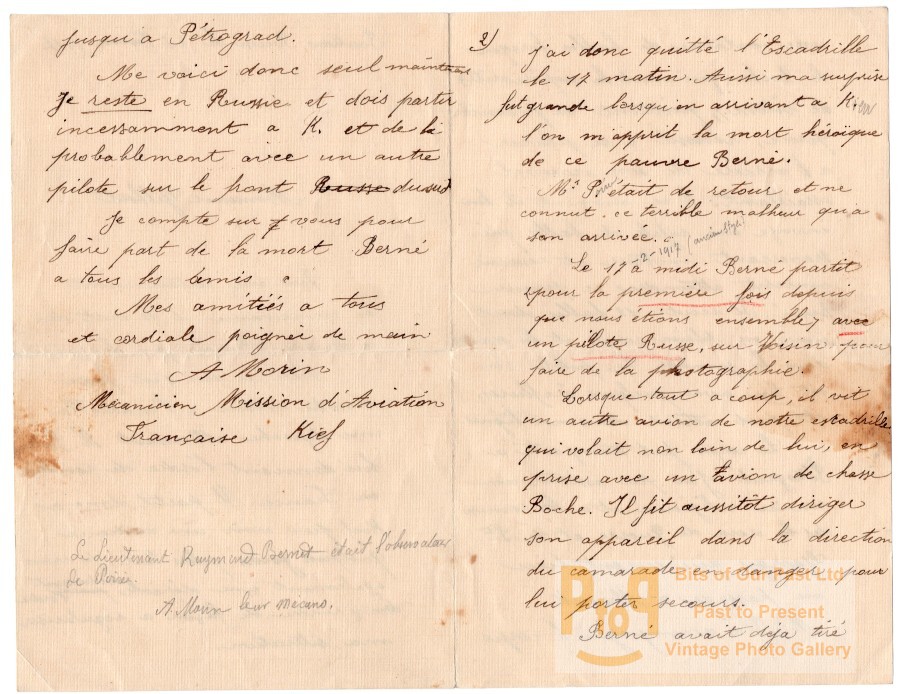 jusqu'a Pétrograd.
Me voici donc seul maintenant
Je reste en Russie et dois partir
incessamment a K. et de là
probablement avec un autre
pilote sur le front Russe du sud
Je compte sur vous pour
faire part de la mort Berné
a tous les amis.
Mes amitiés a tous
et cordiale poignée de main
A Morin
Mécanicien Mission d'Aviation
Française Kief
Le Lieutenant Raymond Bernet était l'observateur
de Poiré.
A. Morin leur mécano.
2)
j'ai donc quitté l'Escadrille
le 17 matin. Aussi ma surprise
fut grande lorsqu'en arrivant a Kiew
l'on m'apprit la mort héroïque
de ce pauvre Berné.
Mr Poiré était de retour et ne
connut ce terrible malheur qu'a
son arrivée.
-2-1917 (ancien style)
Le 17 a midi Berné partit
(pour la première fois depuis
que nous étions ensemble) avec
un pilote Russe, sur Voisin pour
faire de la photographie.
Lorsque tout a coup, il vit
un autre avion de notre escadrille
qui volait non loin de lui, en
prise avec un avion de chasse
Boche. Il fit aussitôt diriger
son appareil dans la direction
du camarade en danger pour
lui porter secours.
Berné avait déja tiré
Bits of Our Past Ltd
Past to Present
Vintage Photo Gallery
PtoP